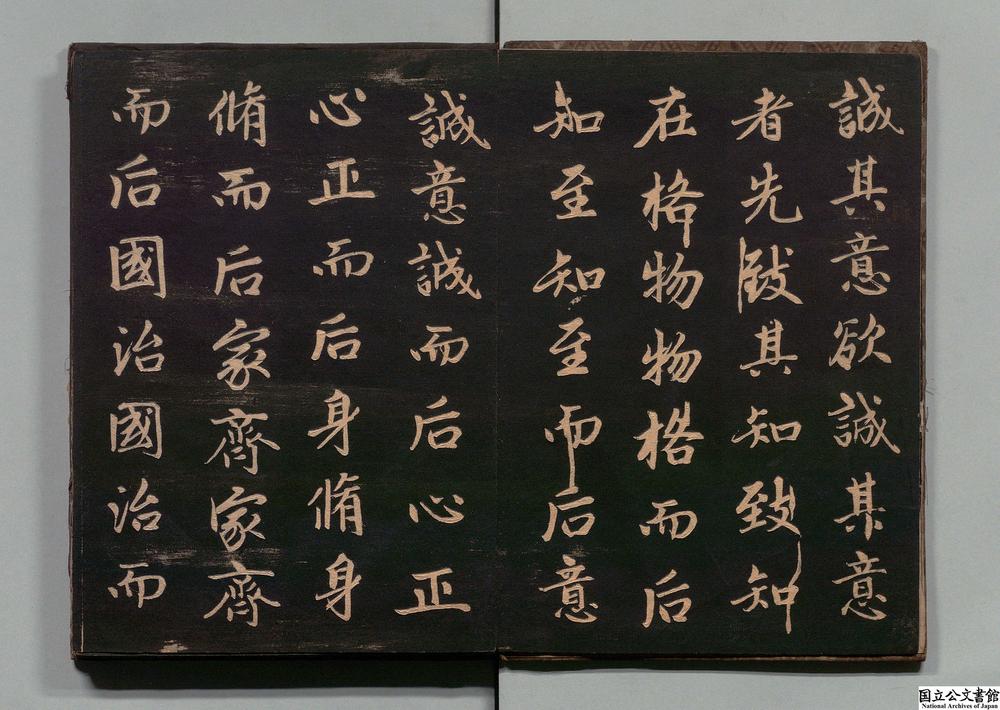 誠其意欲誠其意
者先致其知致知
在格物物格而后
知至知至而后意
誠意誠而后心正
心正而后身脩身
脩而后家齊家齊
而后國治國治而
国立公文書館
National Archives of Japan